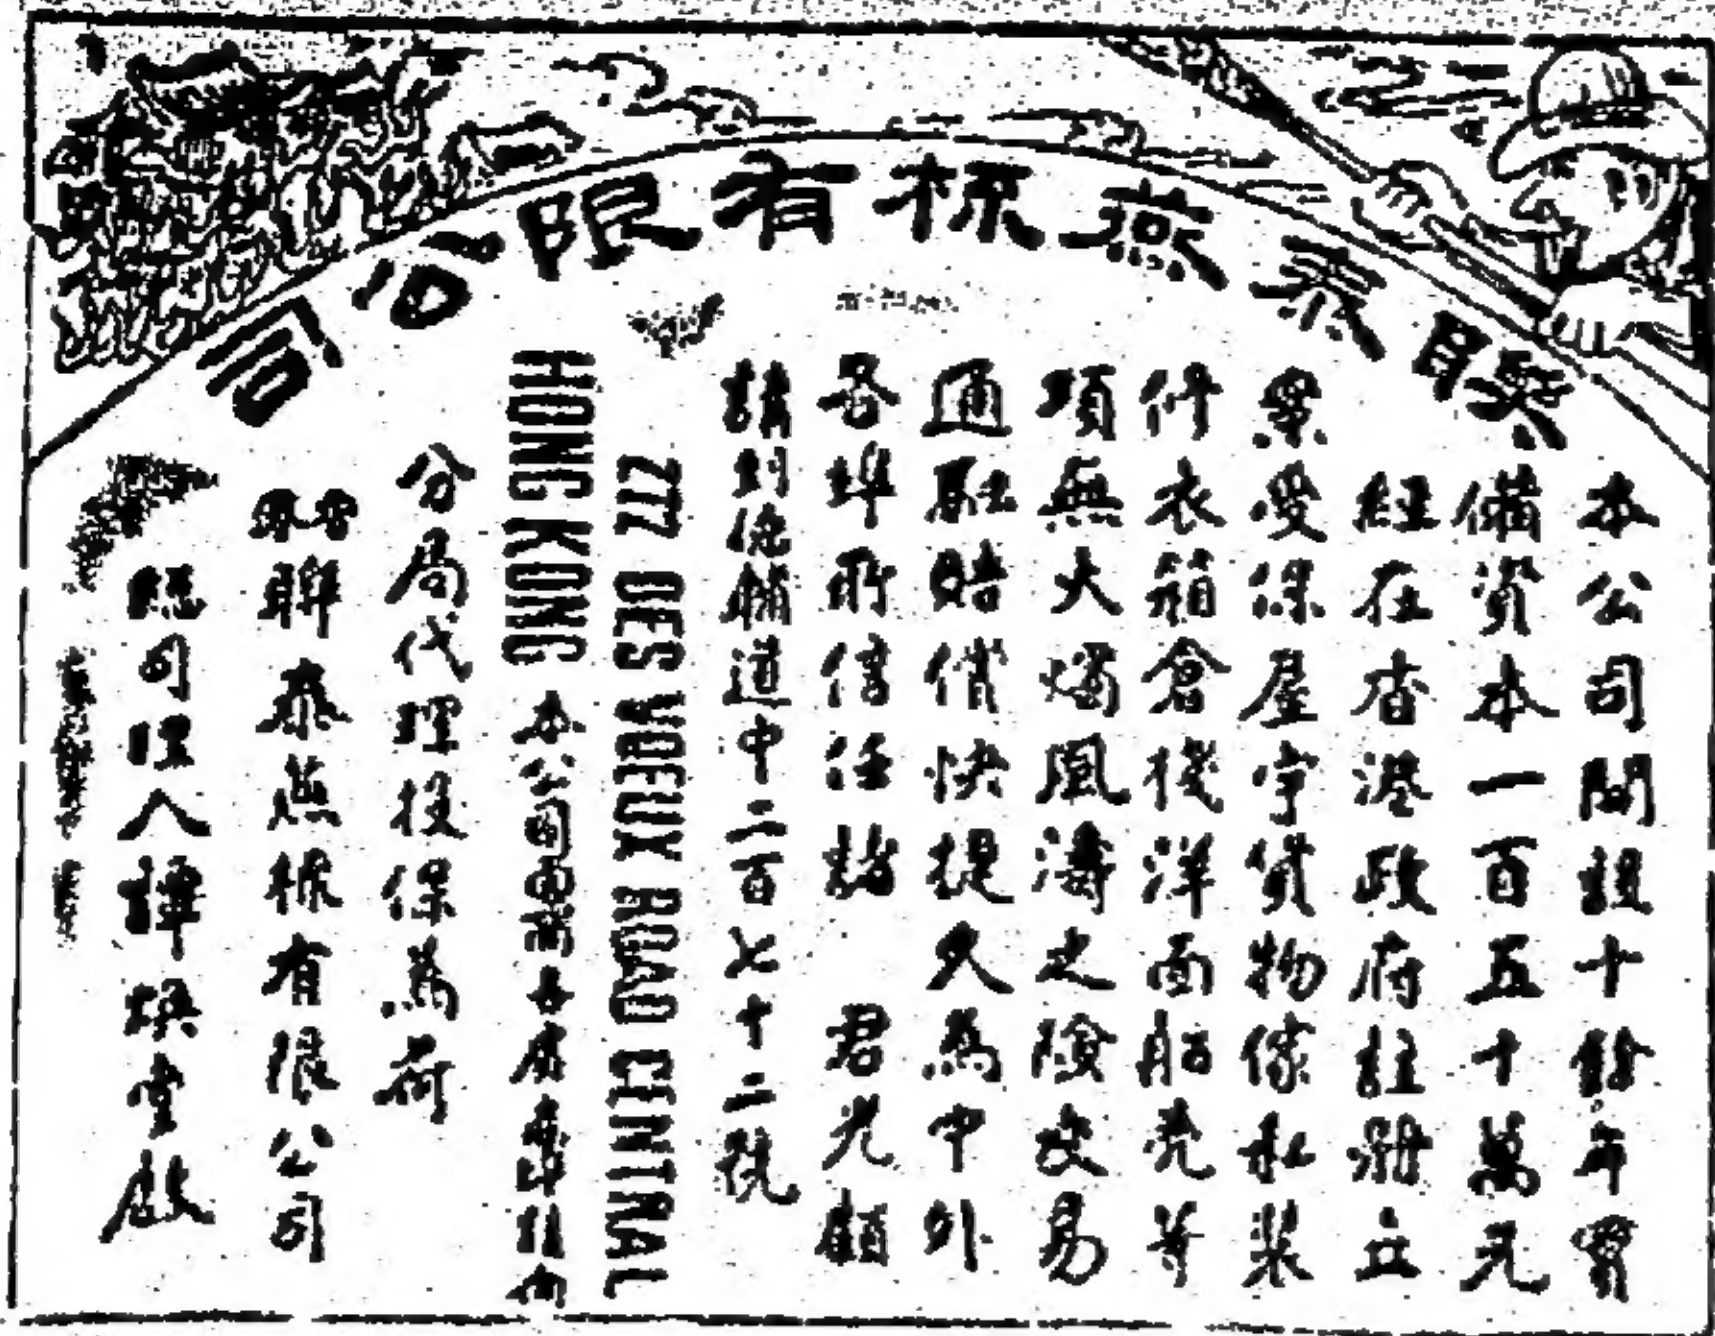 聯泰燕梳有限公司
本公司開設十餘年實
備資本一百五十萬元
經在香港政府註冊立
案受保屋宇貨物傢私裝
修衣箱倉棧洋面船壳等
項無火燭風濤之險交易
通融賠償快捷久為中外
各埠所信任諸 君光顧
請到德輔道中二百七十二號
DES VOEUX ROAD CENTRAL
HONG KONG 本公司
分局代理投保為荷
香港聯泰燕梳有限公司
總司理人譚煥堂啟